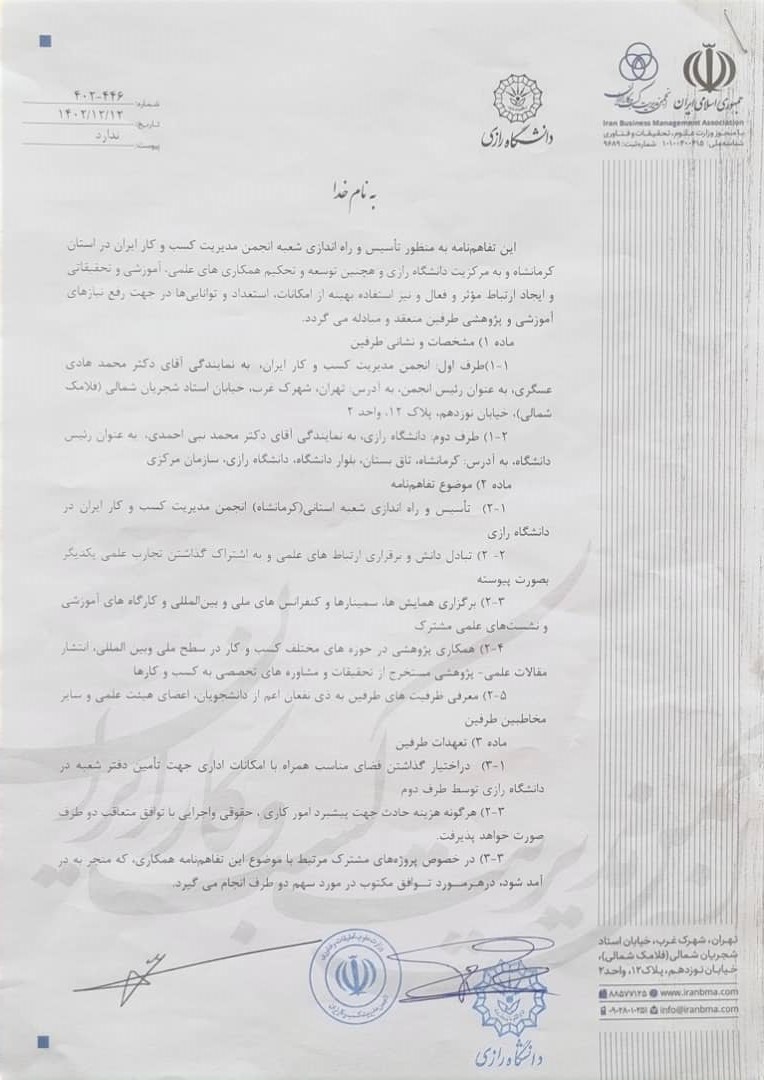 جمهوری اسلامی ایران
انجمن مدیریت کسب و کار ایران
Iran Business Management Association
با مجوز وزارت علوم، تحقیقات و فناوری
شناسه ملی: ۱۰۱۰۰۴۰۰۴۱۵ شماره ثبت: ۹۶۸۹
دانشگاه رازی
شماره: ۴۰۲-۴۴۶
تاریخ: ۱۴۰۲/۱۲/۱۲
پیوست: ندارد
به نام خدا
این تفاهم‌نامه به منظور تأسیس و راه اندازی شعبه انجمن مدیریت کسب و کار ایران در استان
کرمانشاه و به مرکزیت دانشگاه رازی و هچنین توسعه و تحکیم همکاری های علمی، آموزشی و تحقیقاتی
و ایجاد ارتباط مؤثر و فعال و نیز استفاده بهینه از امکانات، استعداد و توانایی‌ها در جهت رفع نیازهای
آموزشی و پژوهشی طرفین منعقد و مبادله می گردد.
ماده ۱) مشخصات و نشانی طرفین
۱-۱)طرف اول: انجمن مدیریت کسب و کار ایران، به نمایندگی آقای دکتر محمد هادی
عسگری، به عنوان رئیس انجمن، به آدرس: تهران، شهرک غرب، خیابان استاد شجریان شمالی (فلامک
شمالی)، خیابان نوزدهم، پلاک ۱۲، واحد ۲
۱-۲) طرف دوم: دانشگاه رازی، به نمایندگی آقای دکتر محمد نبی احمدی، به عنوان رئیس
دانشگاه، به آدرس: کرمانشاه، تاق بستان، بلوار دانشگاه، دانشگاه رازی، سازمان مرکزی
ماده ۲) موضوع تفاهم‌نامه
۲-۱) تأسیس و راه اندازی شعبه استانی(کرمانشاه) انجمن مدیریت کسب و کار ایران در
دانشگاه رازی
۲- ۲) تبادل دانش و برقراری ارتباط های علمی و به اشتراک گذاشتن تجارب علمی یکدیگر
بصورت پیوسته
۲-۳) برگزاری همایش ها، سمینارها و کنفرانس های ملی و بین‌المللی و کارگاه های آموزشی
و نشست‌های علمی مشترک
۲-۴) همکاری پژوهشی در حوزه های مختلف کسب و کار در سطح ملی وبین المللی، انتشار
مقالات علمی- پژوهشی مستخرج از تحقیقات و مشاوره های تخصصی به کسب و کارها
۲-۵) معرفی ظرفیت های طرفین به ذی نفعان اعم از دانشجویان، اعضای هیئت علمی و سایر
مخاطبین طرفین
ماده ۳) تعهدات طرفین
۳-۱) دراختیار گذاشتن فضای مناسب همراه با امکانات اداری جهت تأمین دفتر شعبه در
دانشگاه رازی توسط طرف دوم
۳-۲) هرگونه هزینه حادث جهت پیشبرد امور کاری ، حقوقی واجرایی با توافق متعاقب دو طرف
صورت خواهد پذیرفت.
۳-۳) در خصوص پروژه‌های مشترک مرتبط با موضوع این تفاهم‌نامه همکاری، که منجر به در
آمد شود، درهرمورد توافق مکتوب در مورد سهم دو طرف انجام می گیرد.
تهران، شهرک غرب، خیابان استاد
شجریان شمالی(فلامک شمالی)،
خیابان نوزدهم، پلاک۱۲، واحد۲
۸۸۵۷۷۱۲۵ www.iranbma.com
۰۹۰۲۸۰۱۰۲۵۱ info@iranbma.com
دانشگاه رازی